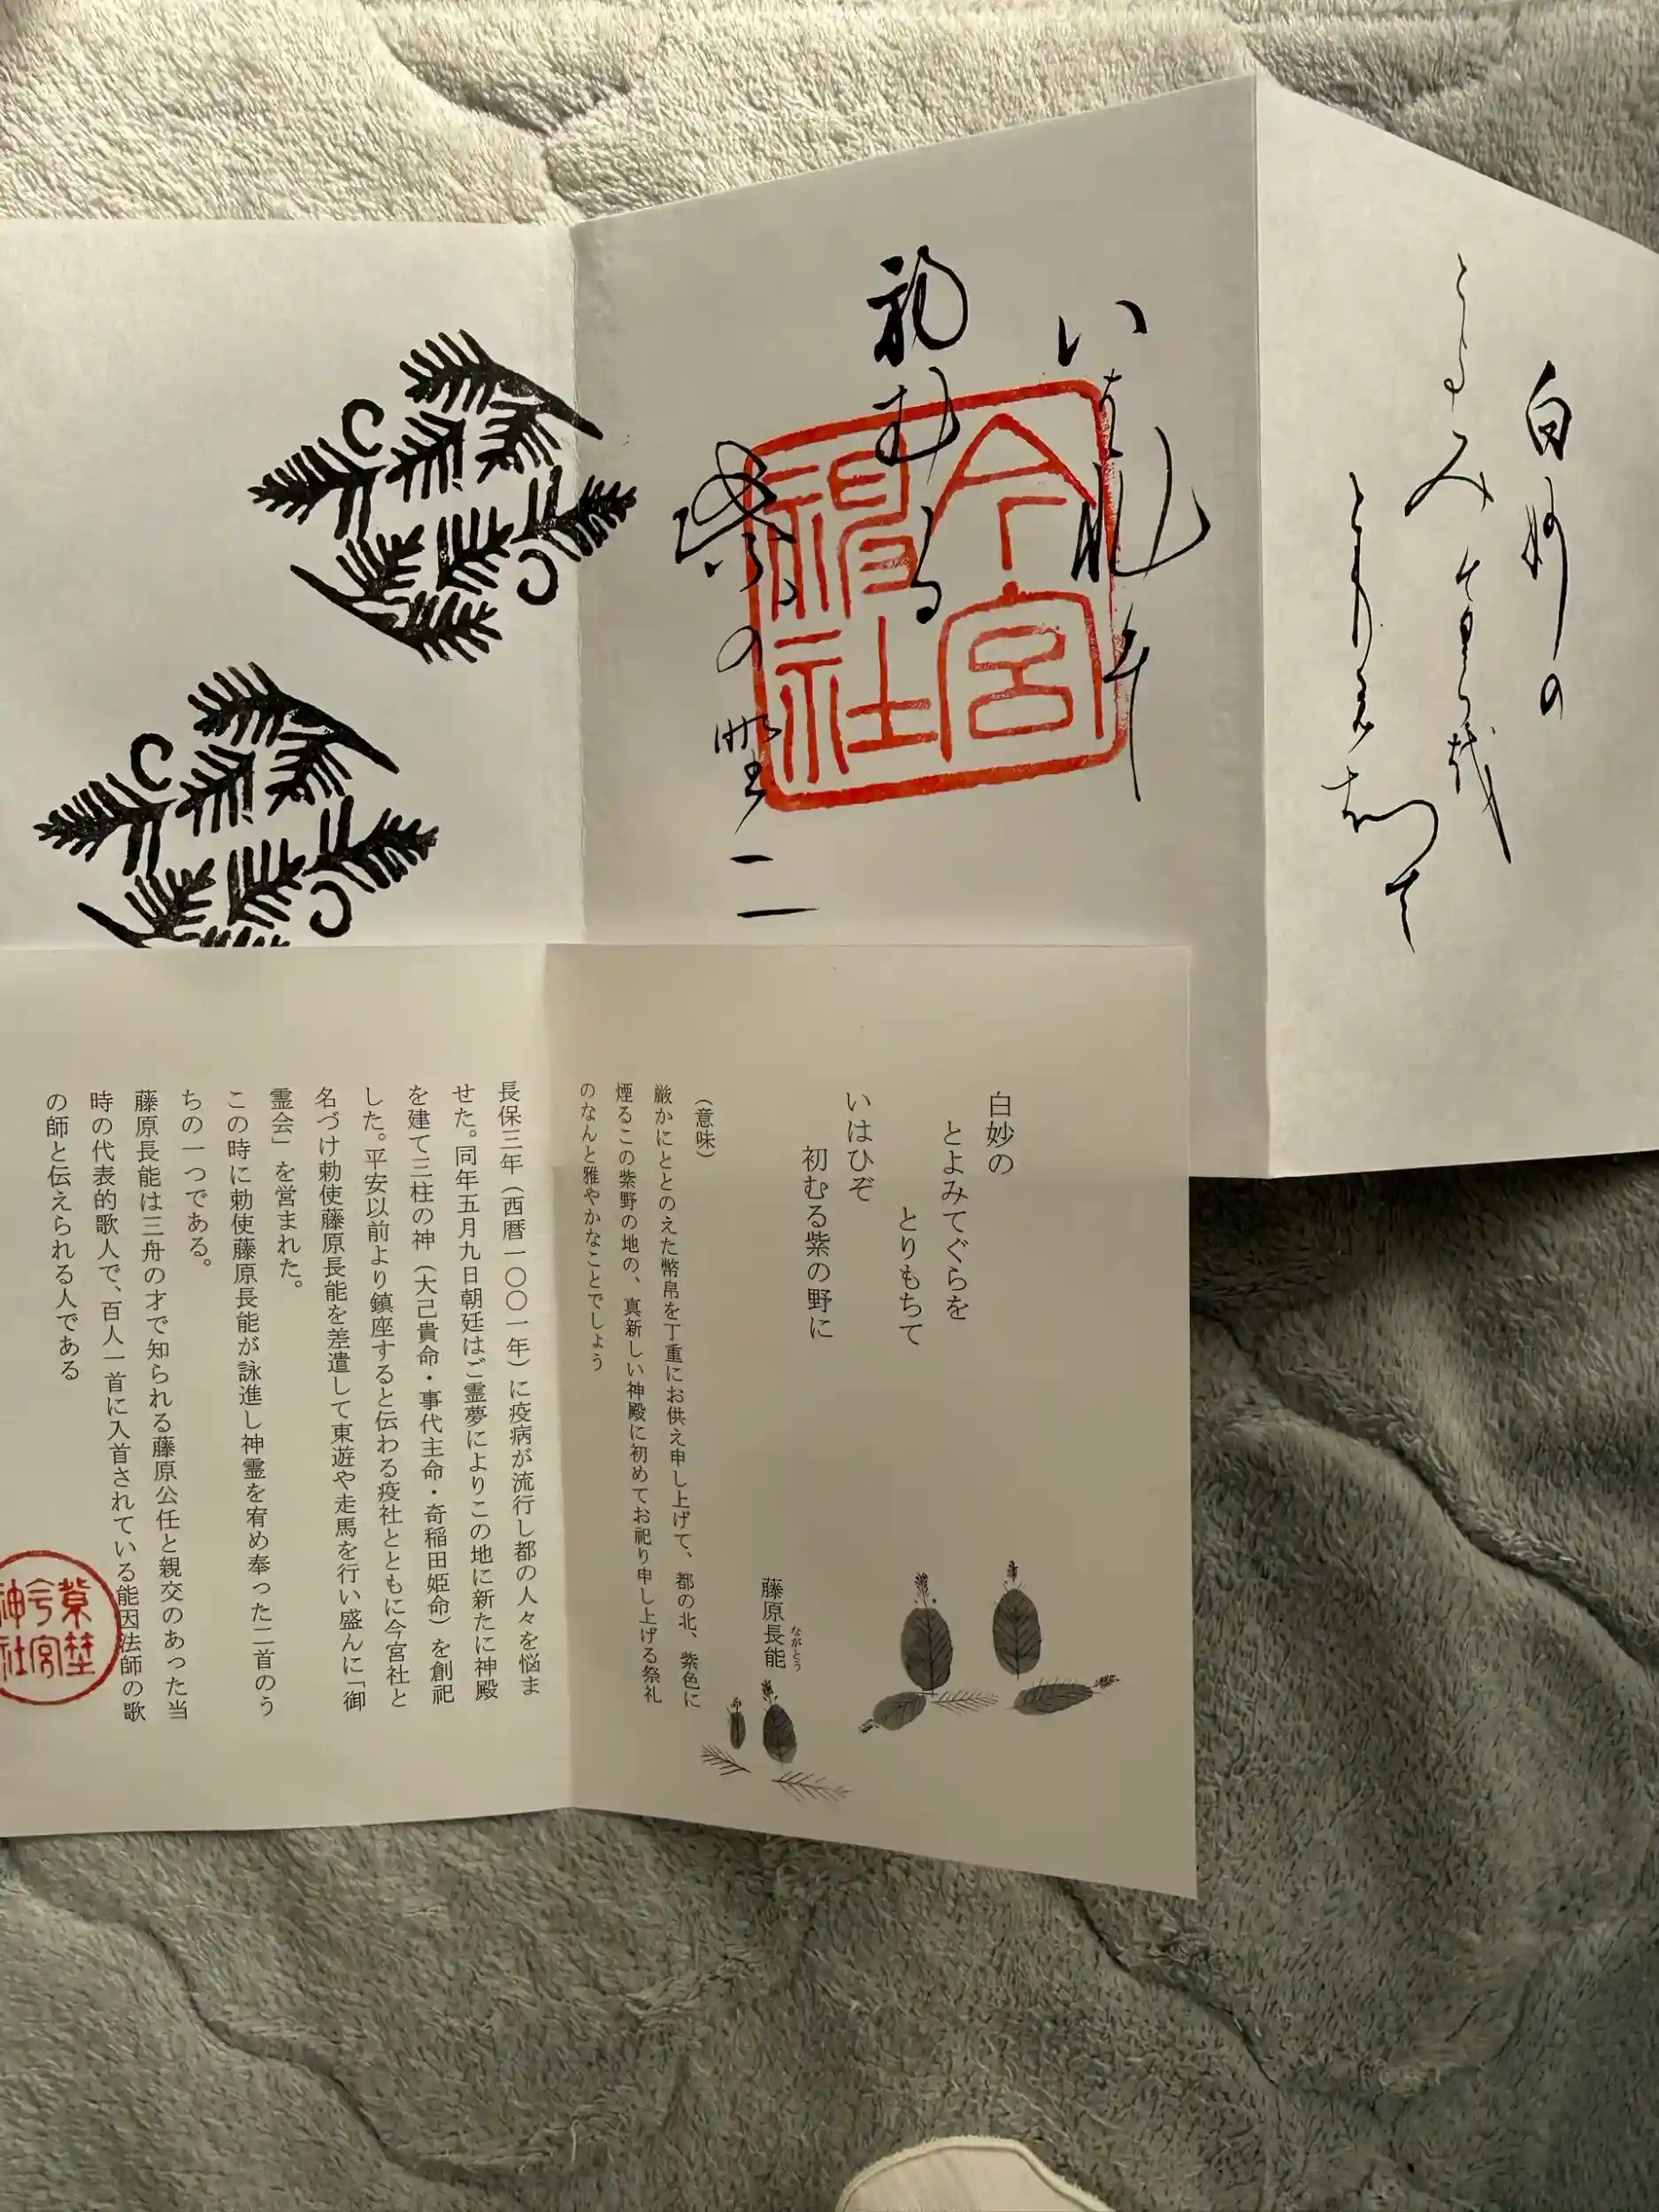 白妙の
とよみてくらを
とりもちて
いはひそ
初むる
紫の野二
今宮神社
白妙の
とよみてぐらを
とりもちて
いはひぞ
初むる紫の野に
藤原長能
ながとう
(意味)
厳かにととのえた幣帛を丁重にお供え申し上げて、都の北、紫色に
煙るこの紫野の地の、真新しい神殿に初めてお祀り申し上げる祭礼
のなんと雅やかなことでしょう
長保三年(西暦一〇〇一年)に疫病が流行し都の人々を悩ま
せた。同年五月九日朝廷はご霊夢によりこの地に新たに神殿
を建て三柱の神(大己貴命・事代主命・奇稲田姫命)を創祀
した。平安以前より鎮座すると伝わる疫社とともに今宮社と
名づけ勅使藤原長能を差遣して東遊や走馬を行い盛んに「御
霊会」を営まれた。
この時に勅使藤原長能が詠進し神霊を宥め奉った二首のう
ちの一つである。
藤原長能は三舟の才で知られる藤原公任と親交のあった当
時の代表的歌人で、百人一首に入首されている能因法師の歌
の師と伝えられる人である
紫野
今宮
神社